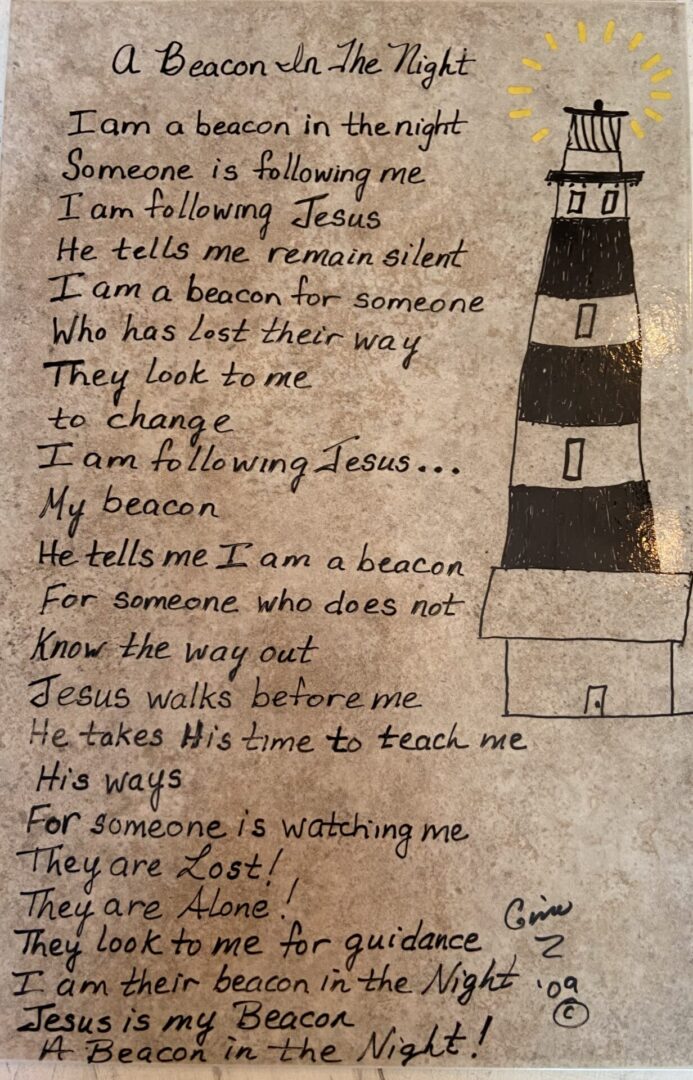 A Beacon In The Night
I am a beacon in the night
Someone is following me
I am following Jesus
He tells me remain silent
I am a beacon for someone
Who has lost their way
They look to me
to change
I am following Jesus...
My beacon
He tells me I am a beacon
For someone who does not
Know the way out
Jesus walks before me
He takes His time to teach me
His ways
For someone is watching me
They are Lost!
They are Alone!
They look to me for guidance
I am their beacon in the Night
Jesus is my Beacon
A Beacon in the Night!
Z
'09
©